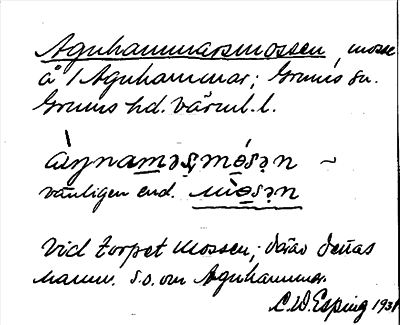 Agnhammarsmossen, mosse
å / Agnhammar; Grums sn.
Grums hd. Värml. l.
àŋnaməṣmósən ~
vanligen end. mòsən
Vid torpet Mossen; därav dettas
namn. S.o. om Agnhammar.
C.W. Esping 1931